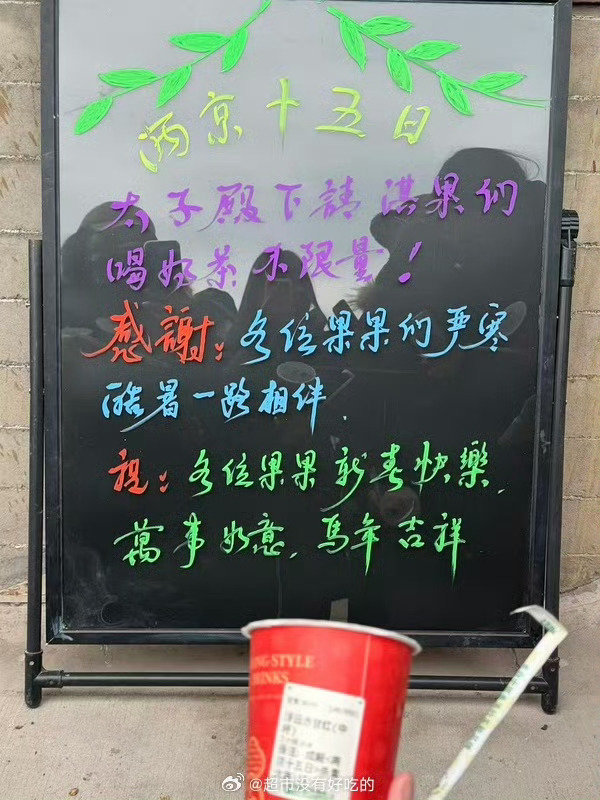 两京十五日
太子殿下請淇果们
喝奶茶不限量！
感謝：各位果果们严寒
酷暑一路相伴.
祝：各位果果新春快樂.
萬事如意.馬年吉祥
NG-STYLE
RINKS
@超市没有好吃的